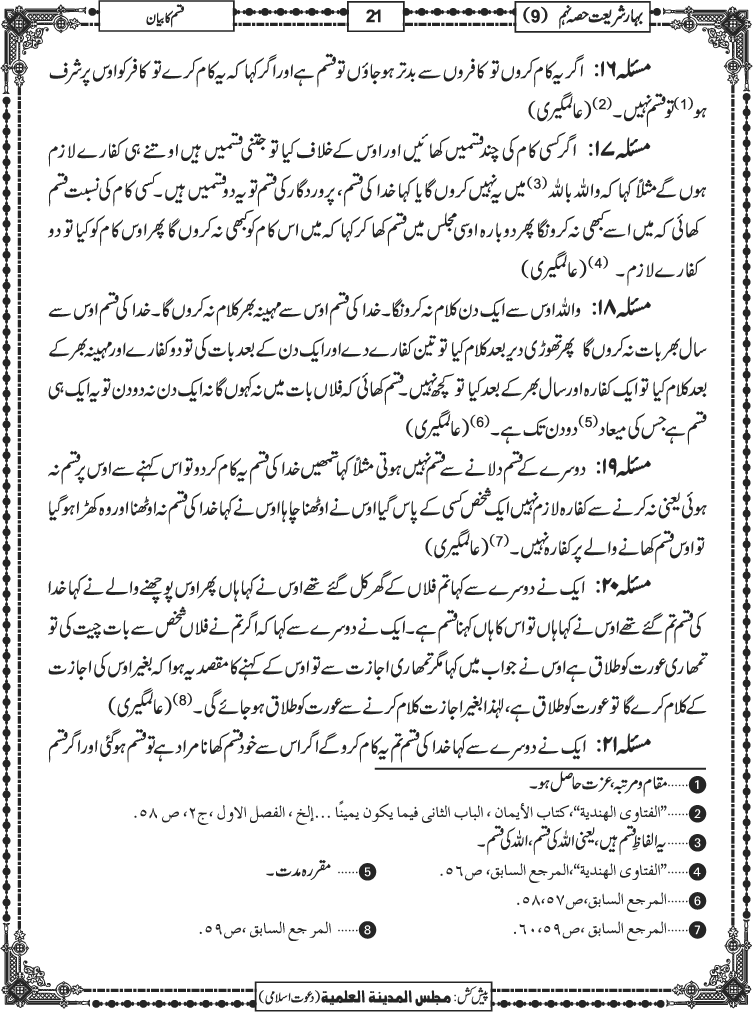 بہار شریعت حصہ نہم (9)
21
قسم کا بیان
مسئلہ ۱۶: اگر یہ کام کروں تو کافروں سے بدتر ہو جاؤں تو قسم ہے اور اگر کہا کہ یہ کام کرے تو کافر کو اوس پر شرف
ہو (1) تو قسم نہیں۔ (2) (عالمگیری)
مسئلہ ۱۷: اگر کسی کام کی چند قسمیں کھائیں اور اوس کے خلاف کیا تو جتنی قسمیں ہیں اوتنے ہی کفارے لازم
ہوں گے مثلاً کہا کہ واللہ باللہ (3) میں یہ نہیں کروں گا یا کہا خدا کی قسم، پروردگار کی قسم تو یہ دو قسمیں ہیں۔ کسی کام کی نسبت قسم
کھائی کہ میں اسے کبھی نہ کرونگا پھر دوبارہ اوسی مجلس میں قسم کھا کر کہا کہ میں اس کام کو کبھی نہ کروں گا پھر اوس کام کو کیا تو دو
کفارے لازم۔ (4) (عالمگیری)
مسئلہ ۱۸: واللہ اوس سے ایک دن کلام نہ کرونگا۔ خدا کی قسم اوس سے مہینہ بھر کلام نہ کروں گا۔ خدا کی قسم اوس سے
سال بھر بات نہ کروں گا پھر تھوڑی دیر بعد کلام کیا تو تین کفارے دے اور ایک دن کے بعد بات کی تو دو کفارے اور مہینہ بھر کے
بعد کلام کیا تو ایک کفارہ اور سال بھر کے بعد کیا تو کچھ نہیں۔ قسم کھائی کہ فلاں بات میں نہ کہوں گا نہ ایک دن نہ دو دن تو یہ ایک ہی
قسم ہے جس کی میعاد (5) دو دن تک ہے۔ (6) (عالمگیری)
مسئلہ ۱۹: دوسرے کے قسم دلانے سے قسم نہیں ہوتی مثلاً کہا تمھیں خدا کی قسم یہ کام کر دو تو اس کہنے سے اوس پر قسم نہ
ہوئی یعنی نہ کرنے سے کفارہ لازم نہیں ایک شخص کسی کے پاس گیا اوس نے اوٹھنا چاہا اوس نے کہا خدا کی قسم نہ اوٹھنا اور وہ کھڑا ہو گیا
تو اوس قسم کھانے والے پر کفارہ نہیں۔ (7) (عالمگیری)
مسئلہ ۲۰: ایک نے دوسرے سے کہا تم فلاں کے گھر کل گئے تھے اوس نے کہا ہاں پھر اوس پوچھنے والے نے کہا خدا
کی قسم تم گئے تھے اوس نے کہا ہاں تو اس کا ہاں کہنا قسم ہے۔ ایک نے دوسرے سے کہا کہ اگر تم نے فلاں شخص سے بات چیت کی تو
تمھاری عورت کو طلاق ہے اوس نے جواب میں کہا مگر تمھاری اجازت سے تو اوس کے کہنے کا مقصد یہ ہوا کہ بغیر اوس کی اجازت
کے کلام کرے گا تو عورت کو طلاق ہے، لہٰذا بغیر اجازت کلام کرنے سے عورت کو طلاق ہو جائے گی۔ (8) (عالمگیری)
مسئلہ ۲۱: ایک نے دوسرے سے کہا خدا کی قسم تم یہ کام کرو گے اگر اس سے خود قسم کھانا مراد ہے تو قسم ہو گئی اور اگر قسم
1 ......مقام و مرتبہ، عزت حاصل ہو۔
2 ......"الفتاوی الھندیة"، کتاب الأیمان، الباب الثانی فیما یکون یمینًا ...إلخ، الفصل الاول، ج۲، ص ۵۸.
3 ......یہ الفاظِ قسم ہیں، یعنی اللہ کی قسم، اللہ کی قسم۔
4 ......"الفتاوی الھندیة"، المرجع السابق، ص۵۶. 5 ...... مقررہ مدت۔
6 ......المرجع السابق، ص۵۷،۵۸.
7 ......المرجع السابق، ص۵۹،۶۰. 8 ...... المرجع السابق، ص۵۹.
پیش کش: مجلس المدینة العلمیة (دعوت اسلامی)